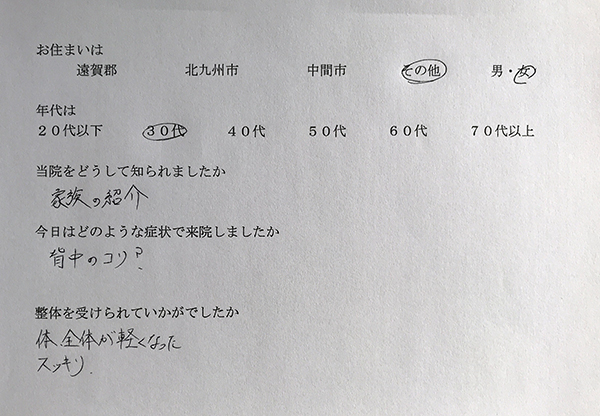 お住まいは
遠賀郡 北九州市 中間市 その他 男・女
年代は
20代以下 30代 40代 50代 60代 70代以上
当院をどうして知られましたか
家族の紹介
今日はどのような症状で来院しましたか
背中のコリ?
整体を受けられていかがでしたか
体全体が軽くなった
スッキリ.